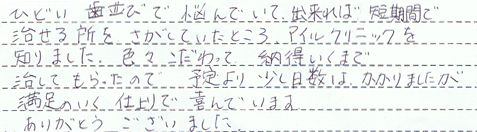 ひどい歯並びで悩んでいて、出来れば短期間で
治せる所をさがしていたところ、アイルクリニックを
知りました。色々こだわって納得いくまで
治してもらったので予定より少し日数はかかりましたが
満足のいく仕上りで喜んでいます
ありがとうございました。